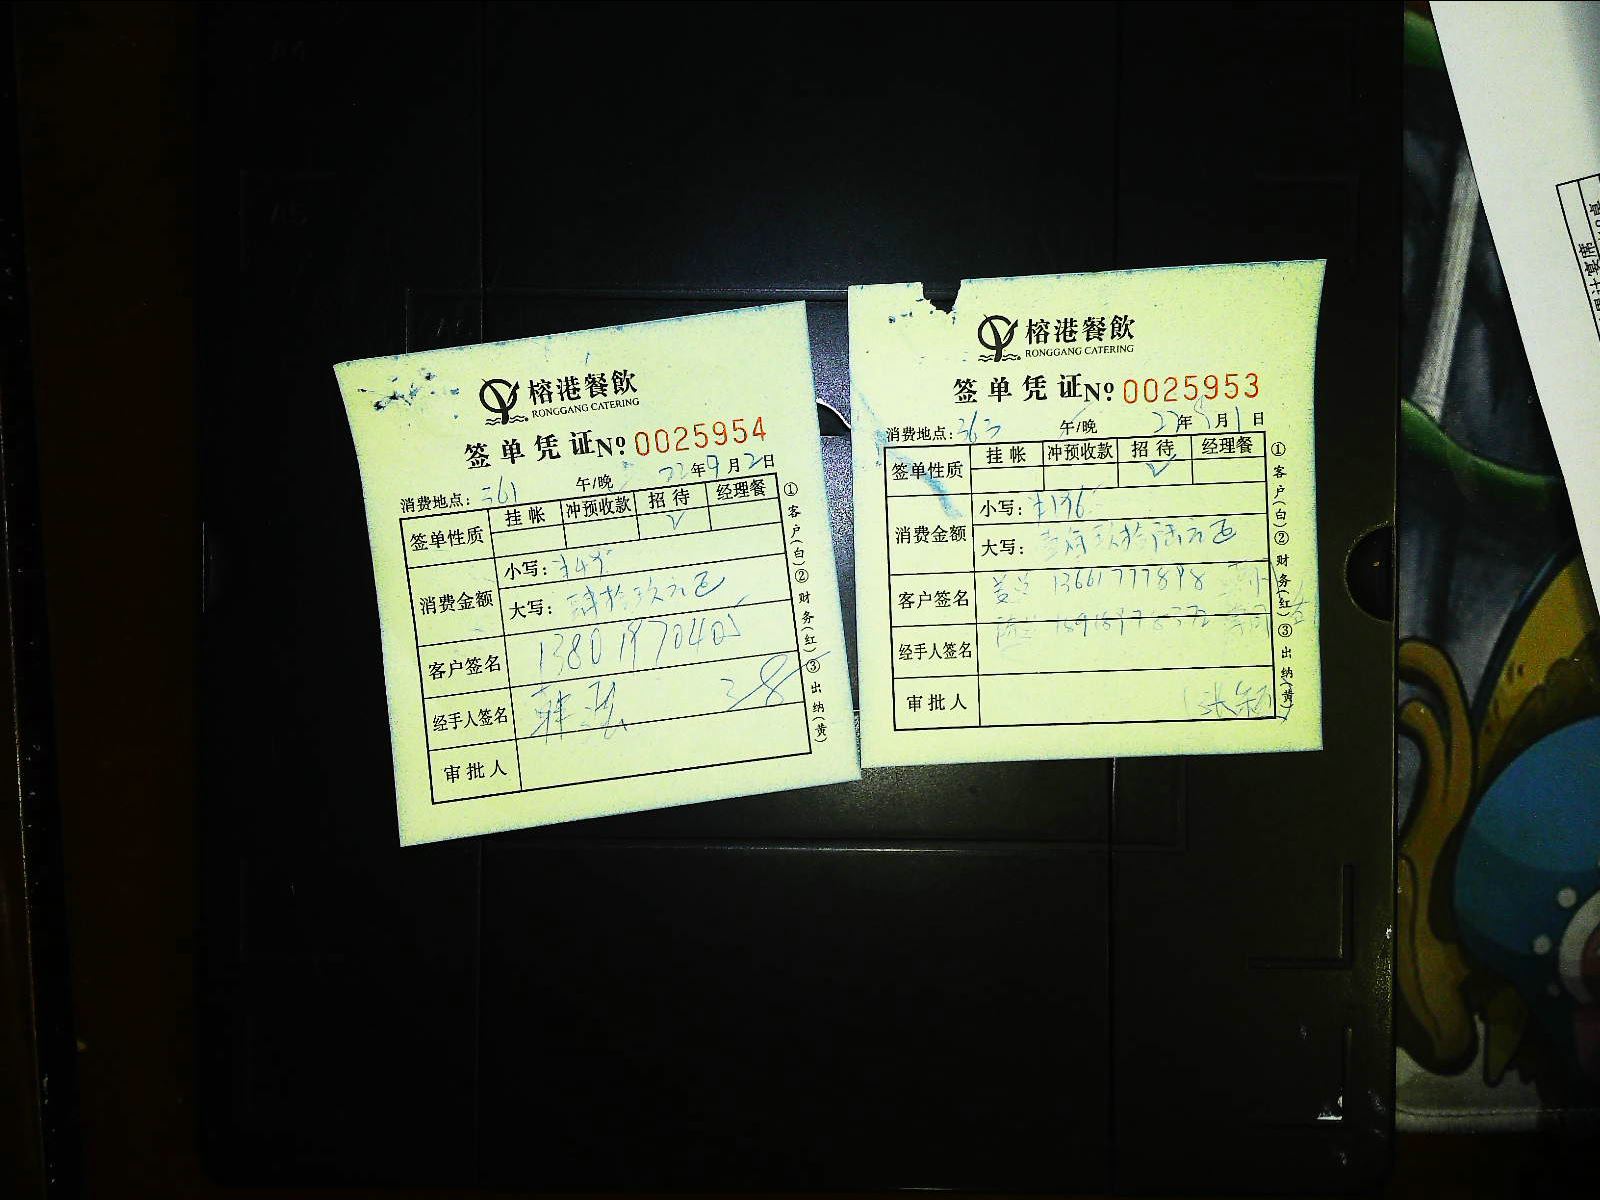 榕港餐飲
RONGGANG CATERING
签单凭证 No 0025954
消费地点：361 午/晚 22年9月2日
签单性质 挂帐 冲预收款 招待 经理餐
✓
消费金额
小写：¥49
大写：肆拾玖元正
客户签名 13801970405
经手人签名 38
审批人
①客户(白)②财务(红)③出纳(黄)
榕港餐飲
RONGGANG CATERING
签单凭证 No 0025953
消费地点：363 午/晚 22年 月1日
签单性质 挂帐 冲预收款 招待 经理餐
✓
消费金额
小写：¥196
大写：壹佰玖拾陆元正
客户签名 13661777898
经手人签名
审批人
①客户(白)②财务(红)③出纳(黄)